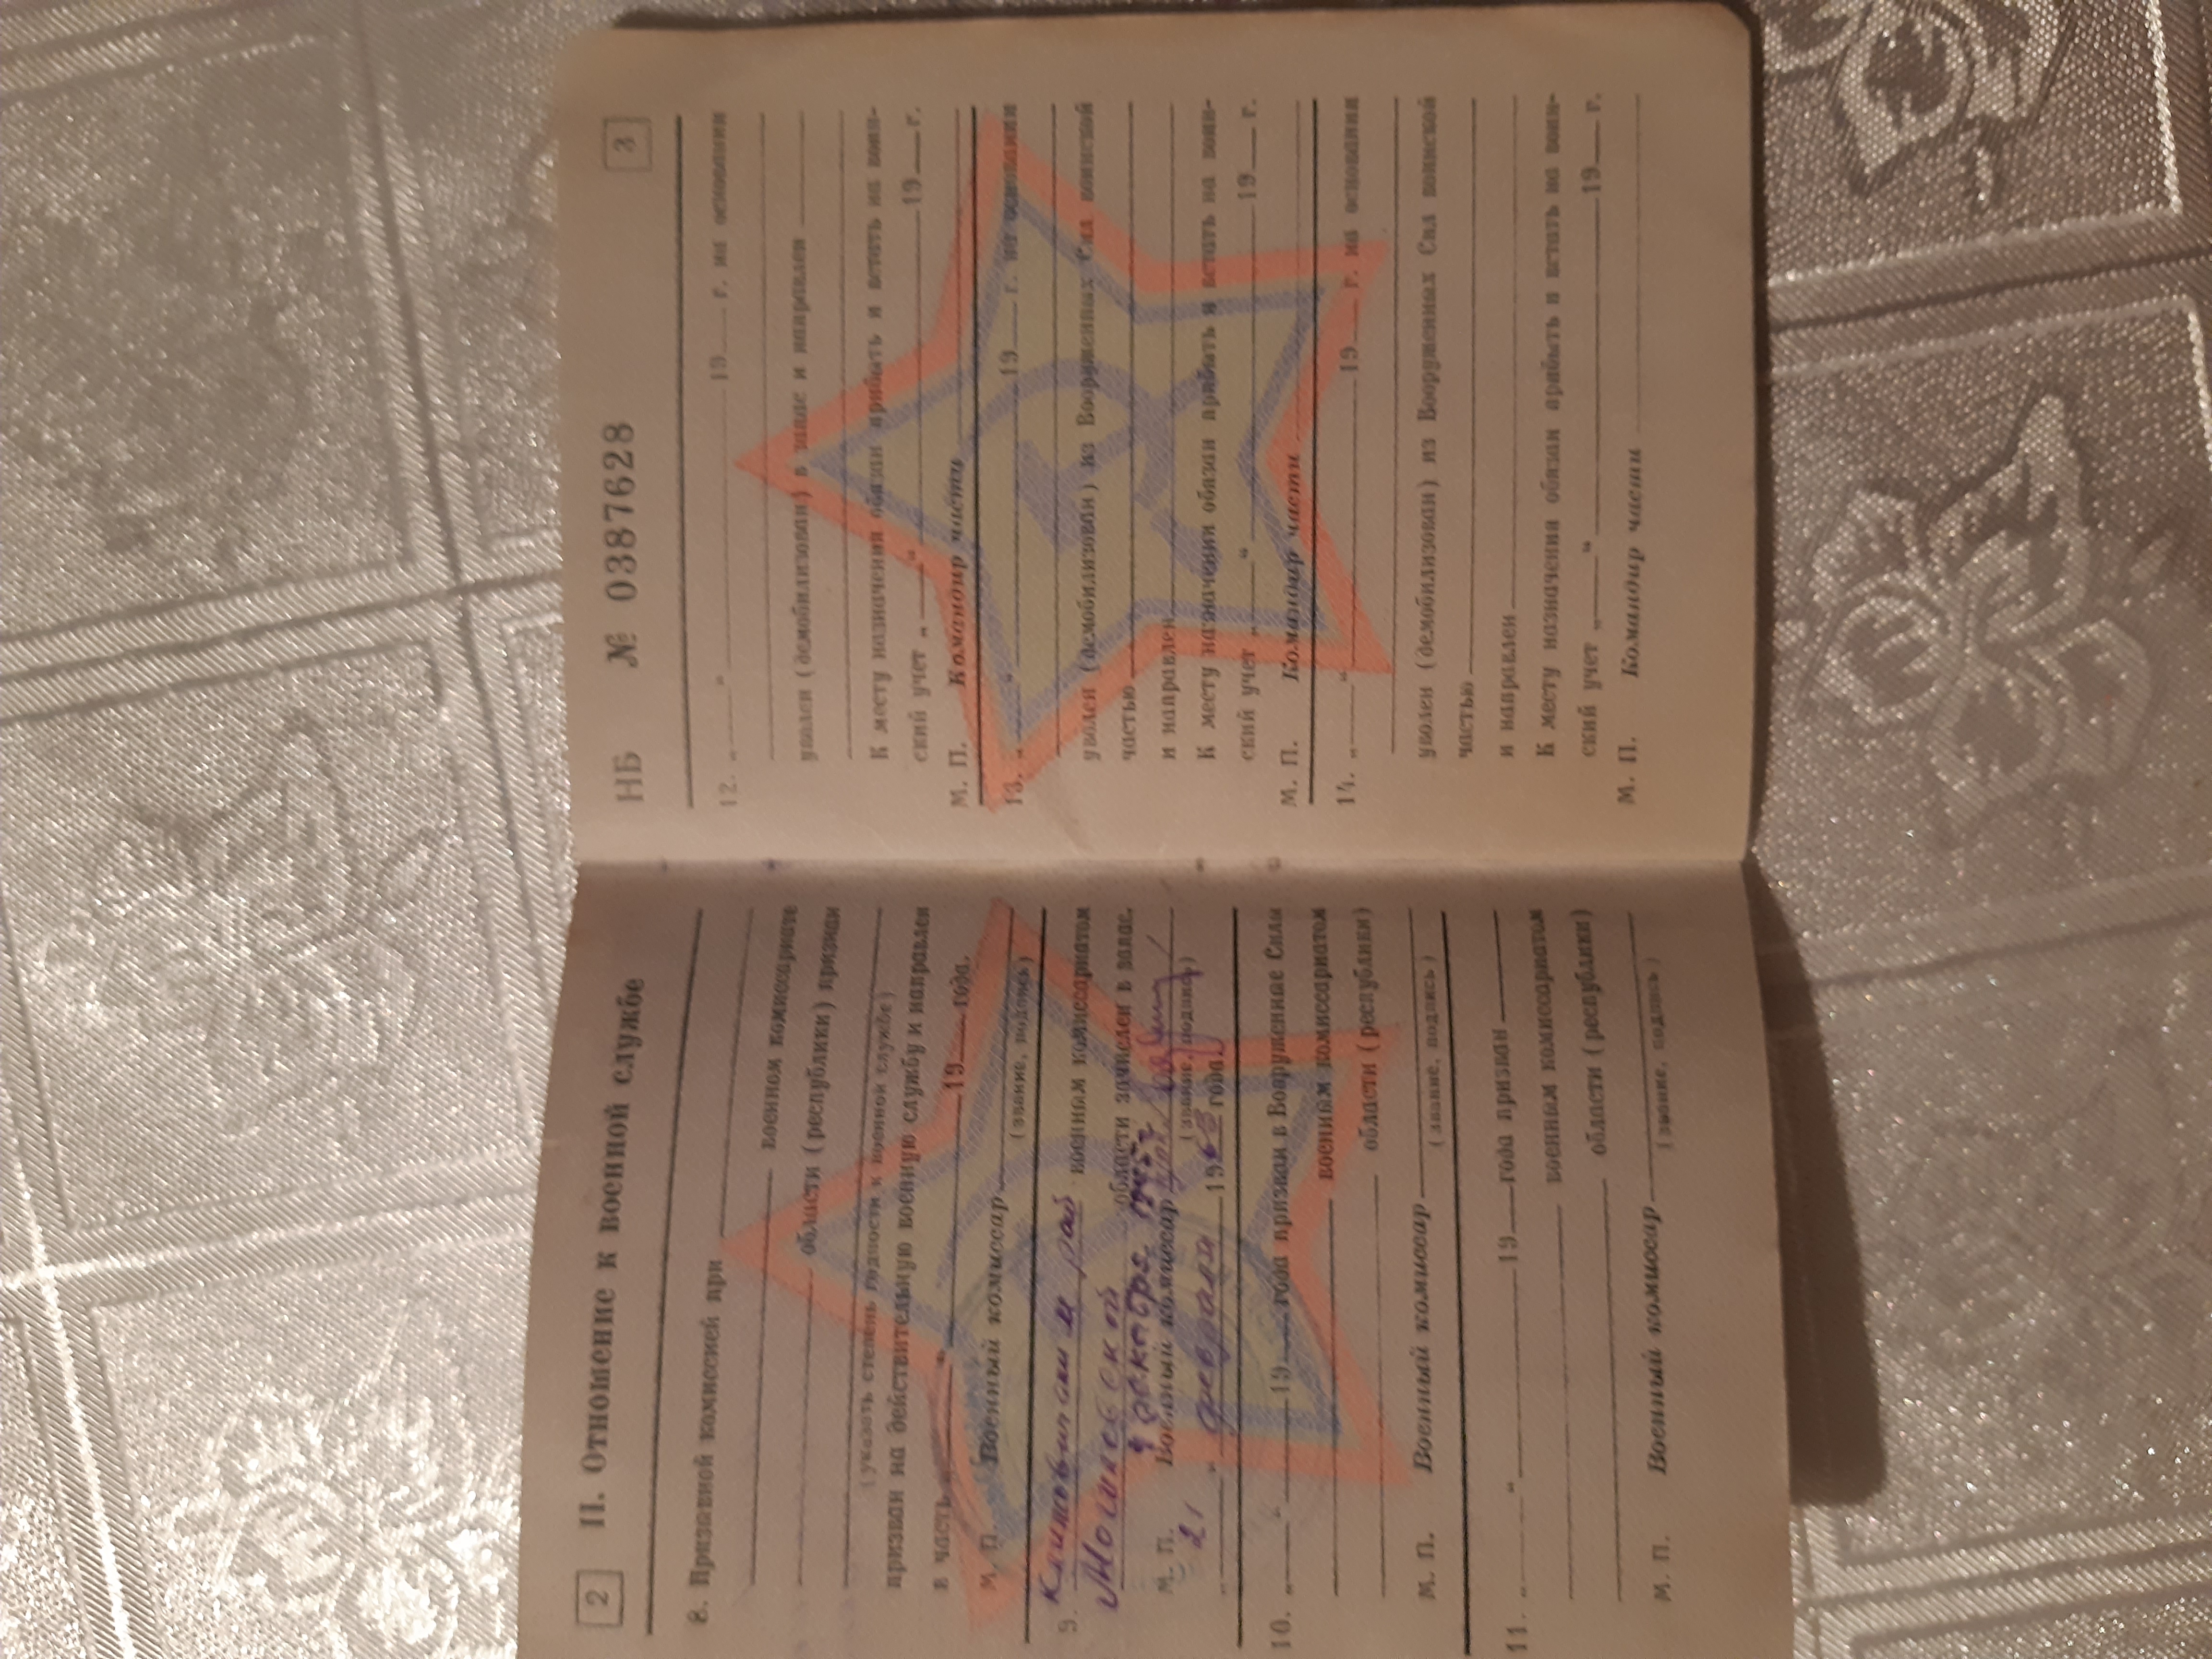 2 II. Отношение к военной службе
8. Призывной комиссией при
военном комиссариате
области (республики) признан
(указать степень годности к военной службе)
призван на действительную военную службу и направлен
в часть „ “ 19 года.
М. П. Военный комиссар
(звание, подпись)
9. Климовичским рай военным комиссариатом
Могилевской области зачислен в запас.
9 декабря 1945 г
М. П. Военный комиссар
(звание, подпись)
„ 21 “ февраля 1963 года.
10. „ “ 19 года призван в Вооруженные Силы
военным комиссариатом
области (республики)
М. П. Военный комиссар
(звание, подпись)
11. „ “ 19 года призван
военным комиссариатом
области (республики)
М. П. Военный комиссар
(звание, подпись)
НБ № 0387628 3
12. „ “ 19 г. на основании
уволен (демобилизован) в запас и направлен
К месту назначения обязан прибыть и встать на воин-
ский учет „ “ 19 г.
М. П. Командир части
13. „ “ 19 г. на основании
уволен (демобилизован) из Вооруженных Сил воинской
частью
и направлен
К месту назначения обязан прибыть и встать на воин-
ский учет „ “ 19 г.
М. П. Командир части
14. „ “ 19 г. на основании
уволен (демобилизован) из Вооруженных Сил воинской
частью
и направлен
К месту назначения обязан прибыть и встать на воин-
ский учет „ “ 19 г.
М. П. Командир части